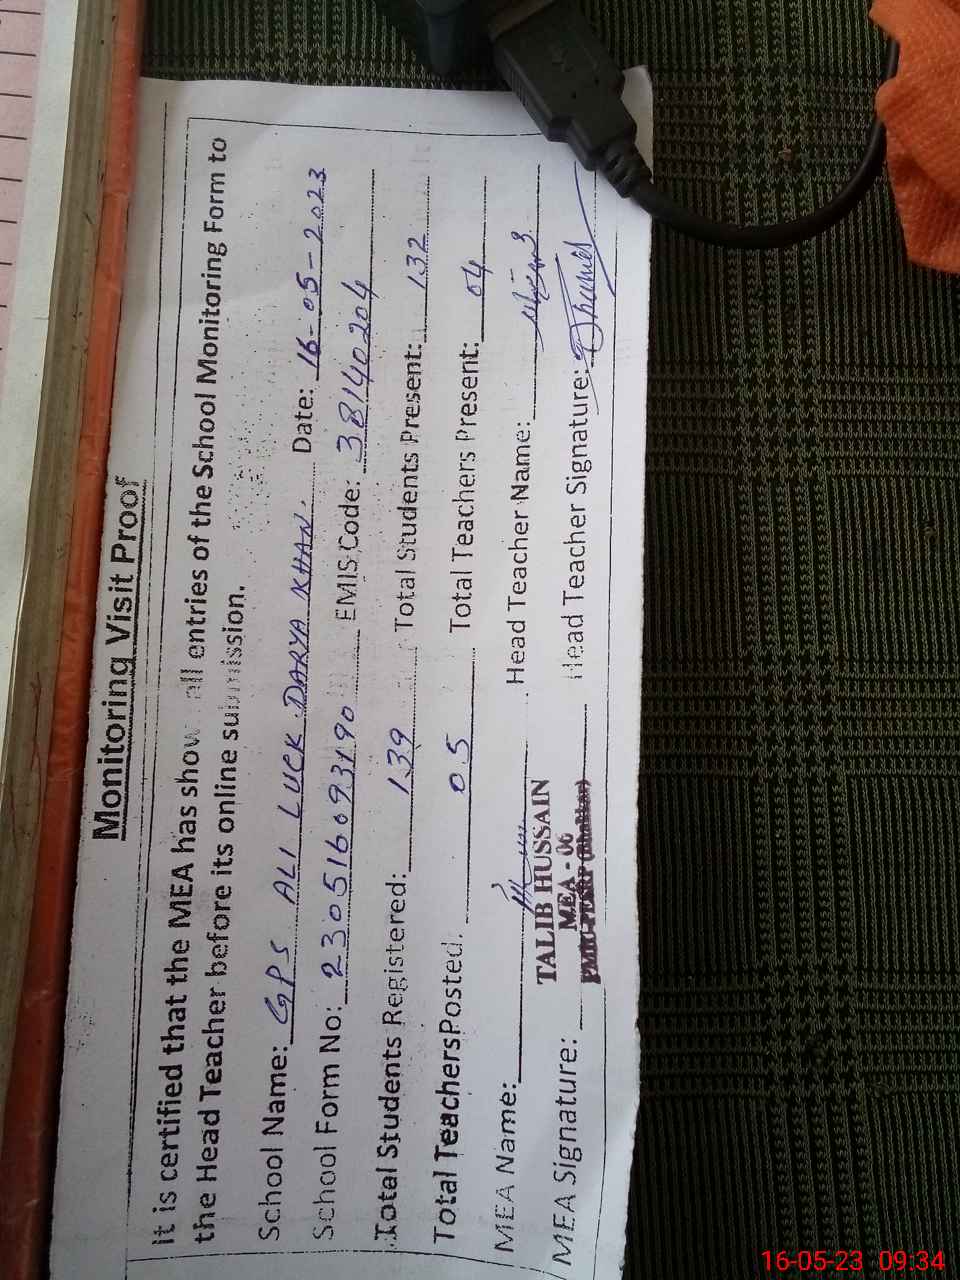 Monitoring Visit Proof
It is certified that the MEA has show all entries of the School Monitoring Form to
the Head Teacher before its online submission.
School Name: GPS ALI LUCK DARYA KHAN. Date: 16-05-2023
School Form No: 230516093190 EMIS Code: 38140204
Total Students Registered: 139 Total Students Present: 132
Total Teachers Posted: 05 Total Teachers Present: 04
MEA Name: Head Teacher Name:
TALIB HUSSAIN
MEA - 06
MEA Signature: Head Teacher Signature:
16-05-23 09:34